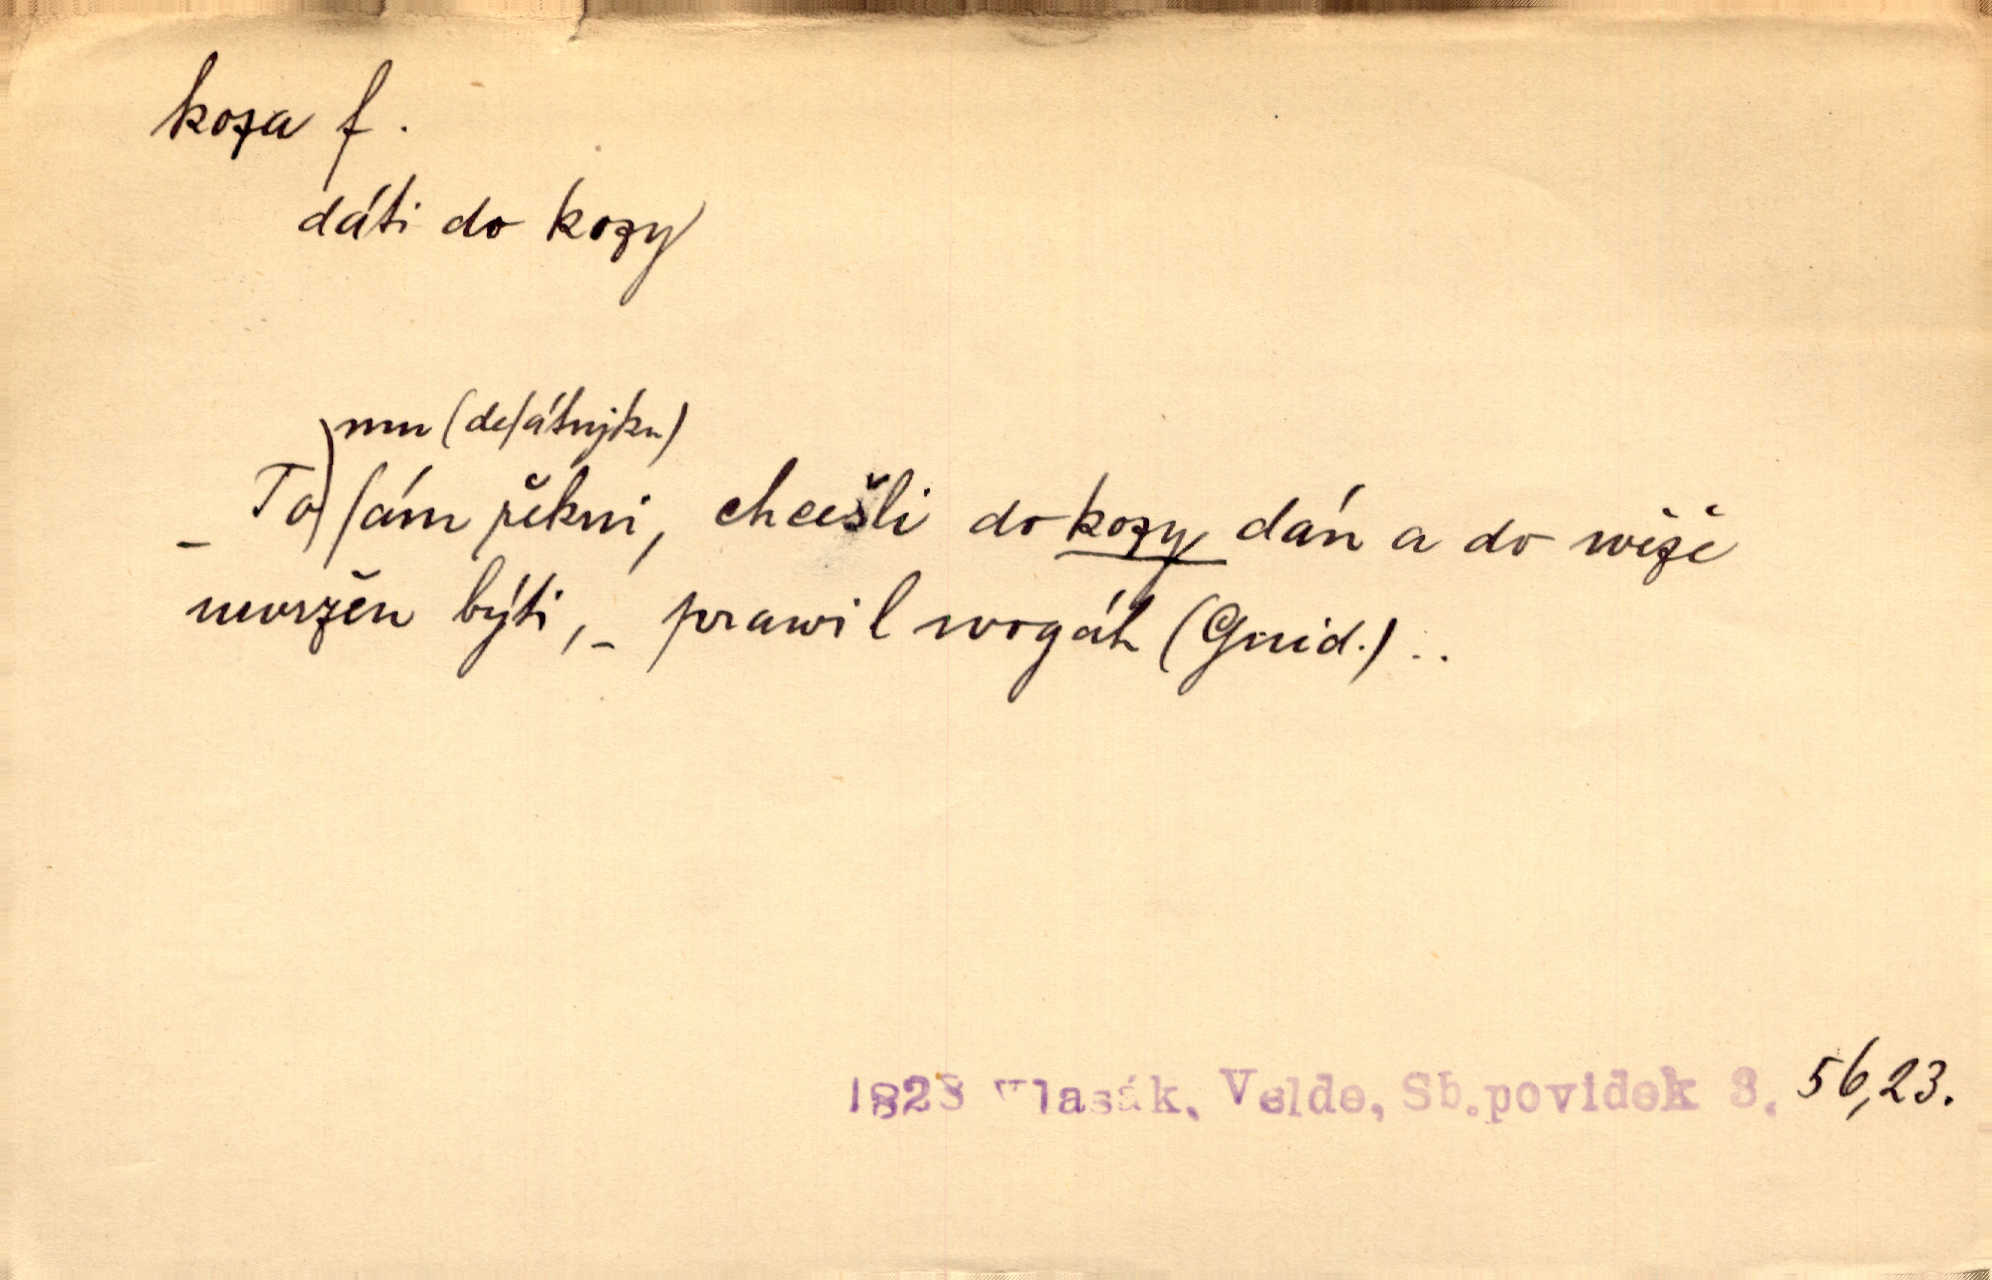 koza f.
dáti do kozy
mu (deſátnjku)
– To) ſám řekni, chcešli do kozy dán a do wěže
uwržen býti, – prawil wogák (Gnid.) ..
1828 Vlasák, Velde, Sb.povidek 3. 56,23.